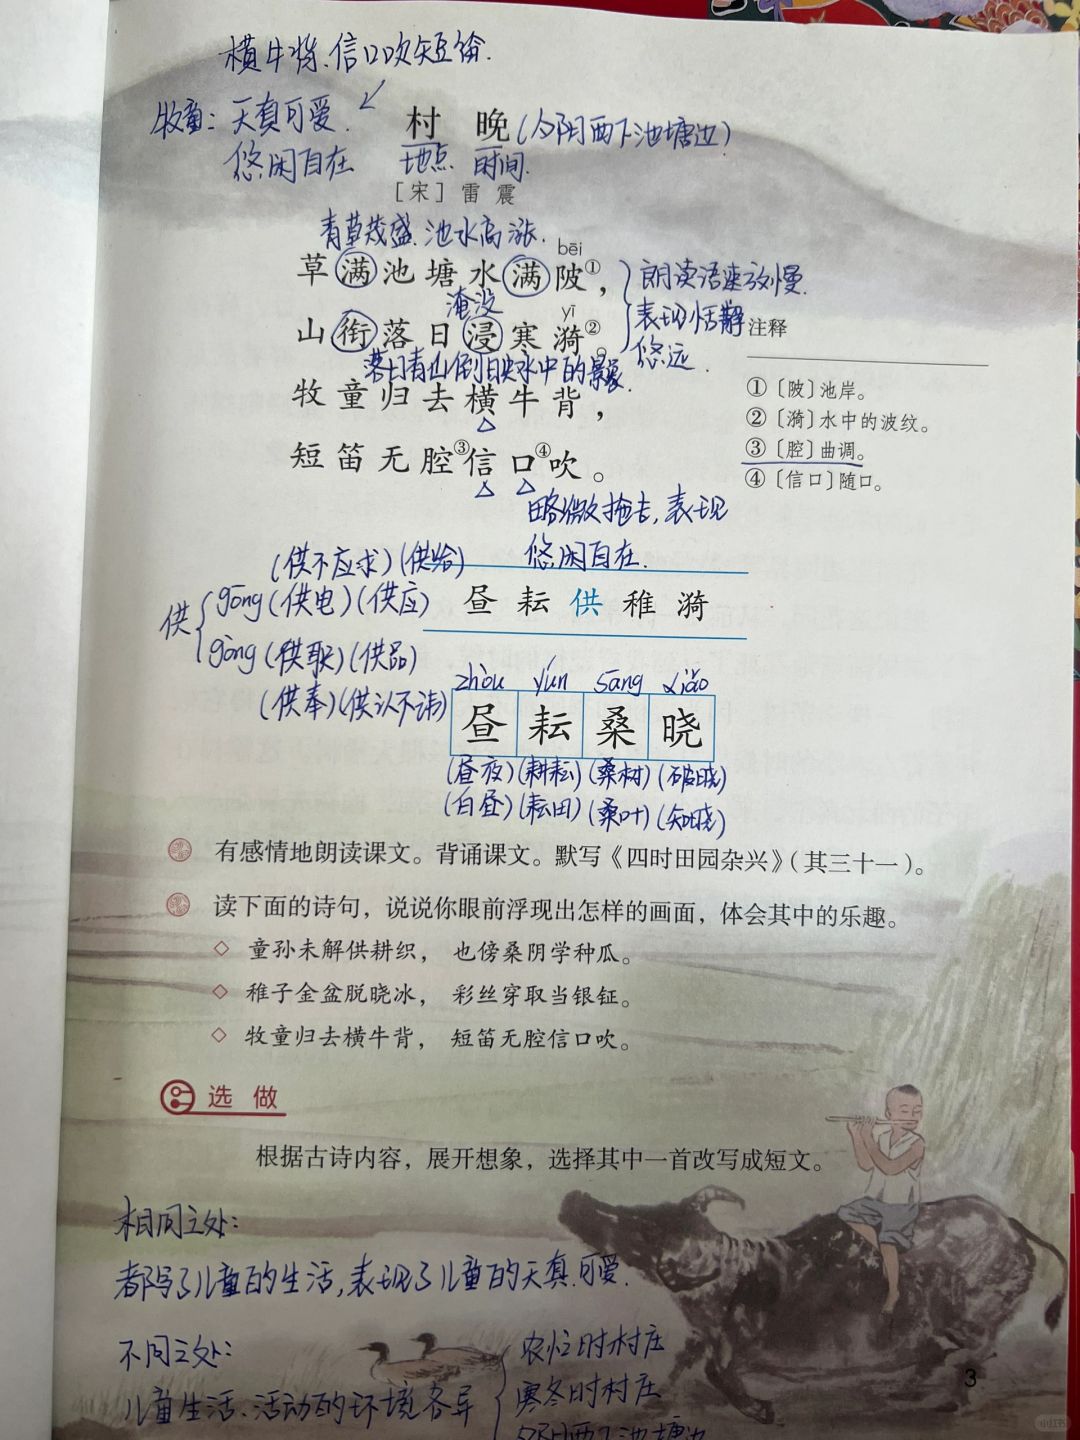 横牛背.信口吹短笛.
牧童:天真可爱.
悠闲自在
村 晚(夕阳西下池塘边)
地点 时间.
[宋]雷 震
青草茂盛.池水高涨.
bēi
草满池塘水满陂①,
朗读语速放慢.
淹没
表现恬静
悠远.
yī
山衔落日浸寒漪②。
落日青山倒映水中的景象.
牧童归去横牛背,
短笛无腔③信口④吹。
略微拖长,表现
悠闲自在.
注释
①〔陂〕池岸。
②〔漪〕水中的波纹。
③〔腔〕曲调。
④〔信口〕随口。
(供不应求)(供给)
供 gōng(供电)(供应)
gòng(供职)(供品)
(供奉)(供认不讳)
昼 耘 供 稚 漪
zhòu yún sāng xiǎo
昼 耘 桑 晓
(昼夜)(耕耘)(桑树)(破晓)
(白昼)(耘田)(桑叶)(知晓)
有感情地朗读课文。背诵课文。默写《四时田园杂兴》(其三十一)。
读下面的诗句,说说你眼前浮现出怎样的画面,体会其中的乐趣。
◇ 童孙未解供耕织, 也傍桑阴学种瓜。
◇ 稚子金盆脱晓冰, 彩丝穿取当银钲。
◇ 牧童归去横牛背, 短笛无腔信口吹。
选 做
根据古诗内容,展开想象,选择其中一首改写成短文。
相同之处:
都写了儿童的生活,表现了儿童的天真.可爱.
不同之处:
儿童生活、活动的环境各异
农忙时村庄
寒冬时村庄
夕阳西下池塘边
3
小红书